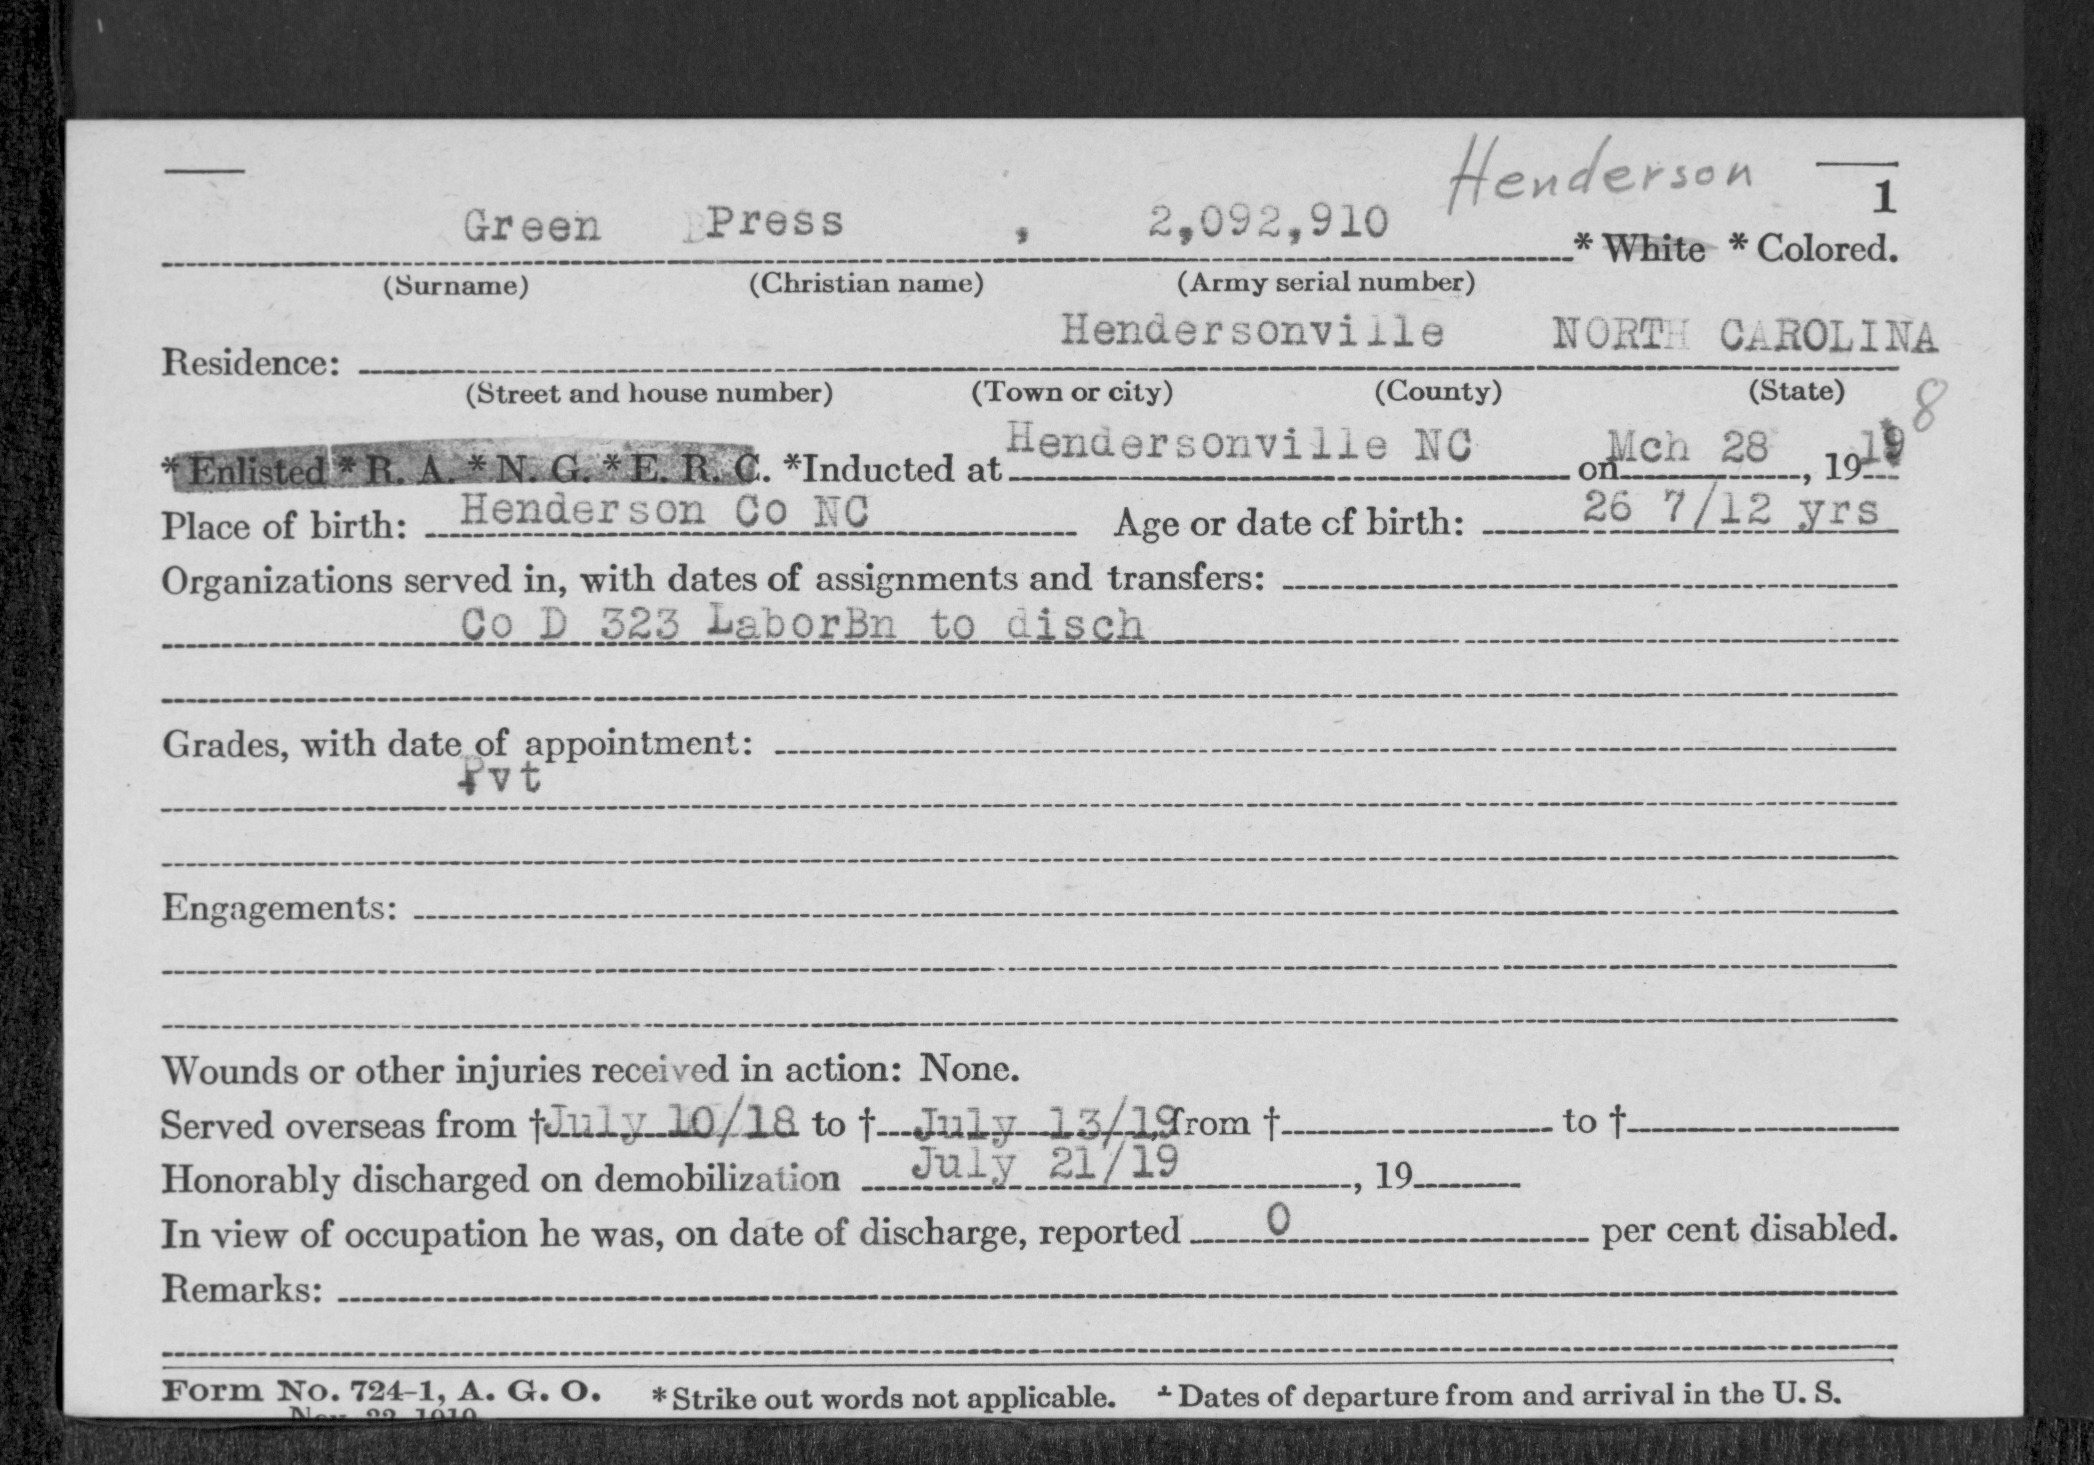 Henderson
1
Green Press , 2,092,910 * White * Colored.
(Surname) (Christian name) (Army serial number)
Hendersonville NORTH CAROLINA
Residence:
(Street and house number) (Town or city) (County) (State)
8
* Enlisted * R. A. * N. G. * E. R. C. *Inducted at Hendersonville NC on Mch 28, 1919
Place of birth: Henderson Co NC Age or date of birth: 26 7/12 yrs
Organizations served in, with dates of assignments and transfers:
Co D 323 LaborBn to disch
Grades, with date of appointment:
Pvt
Engagements:
Wounds or other injuries received in action: None.
Served overseas from † July 10/18 to † July 13/19, from † to †
Honorably discharged on demobilization July 21/19, 19
In view of occupation he was, on date of discharge, reported 0 per cent disabled.
Remarks:
Form No. 724-1, A. G. O. * Strike out words not applicable. † Dates of departure from and arrival in the U. S.
Nov. 22, 1919